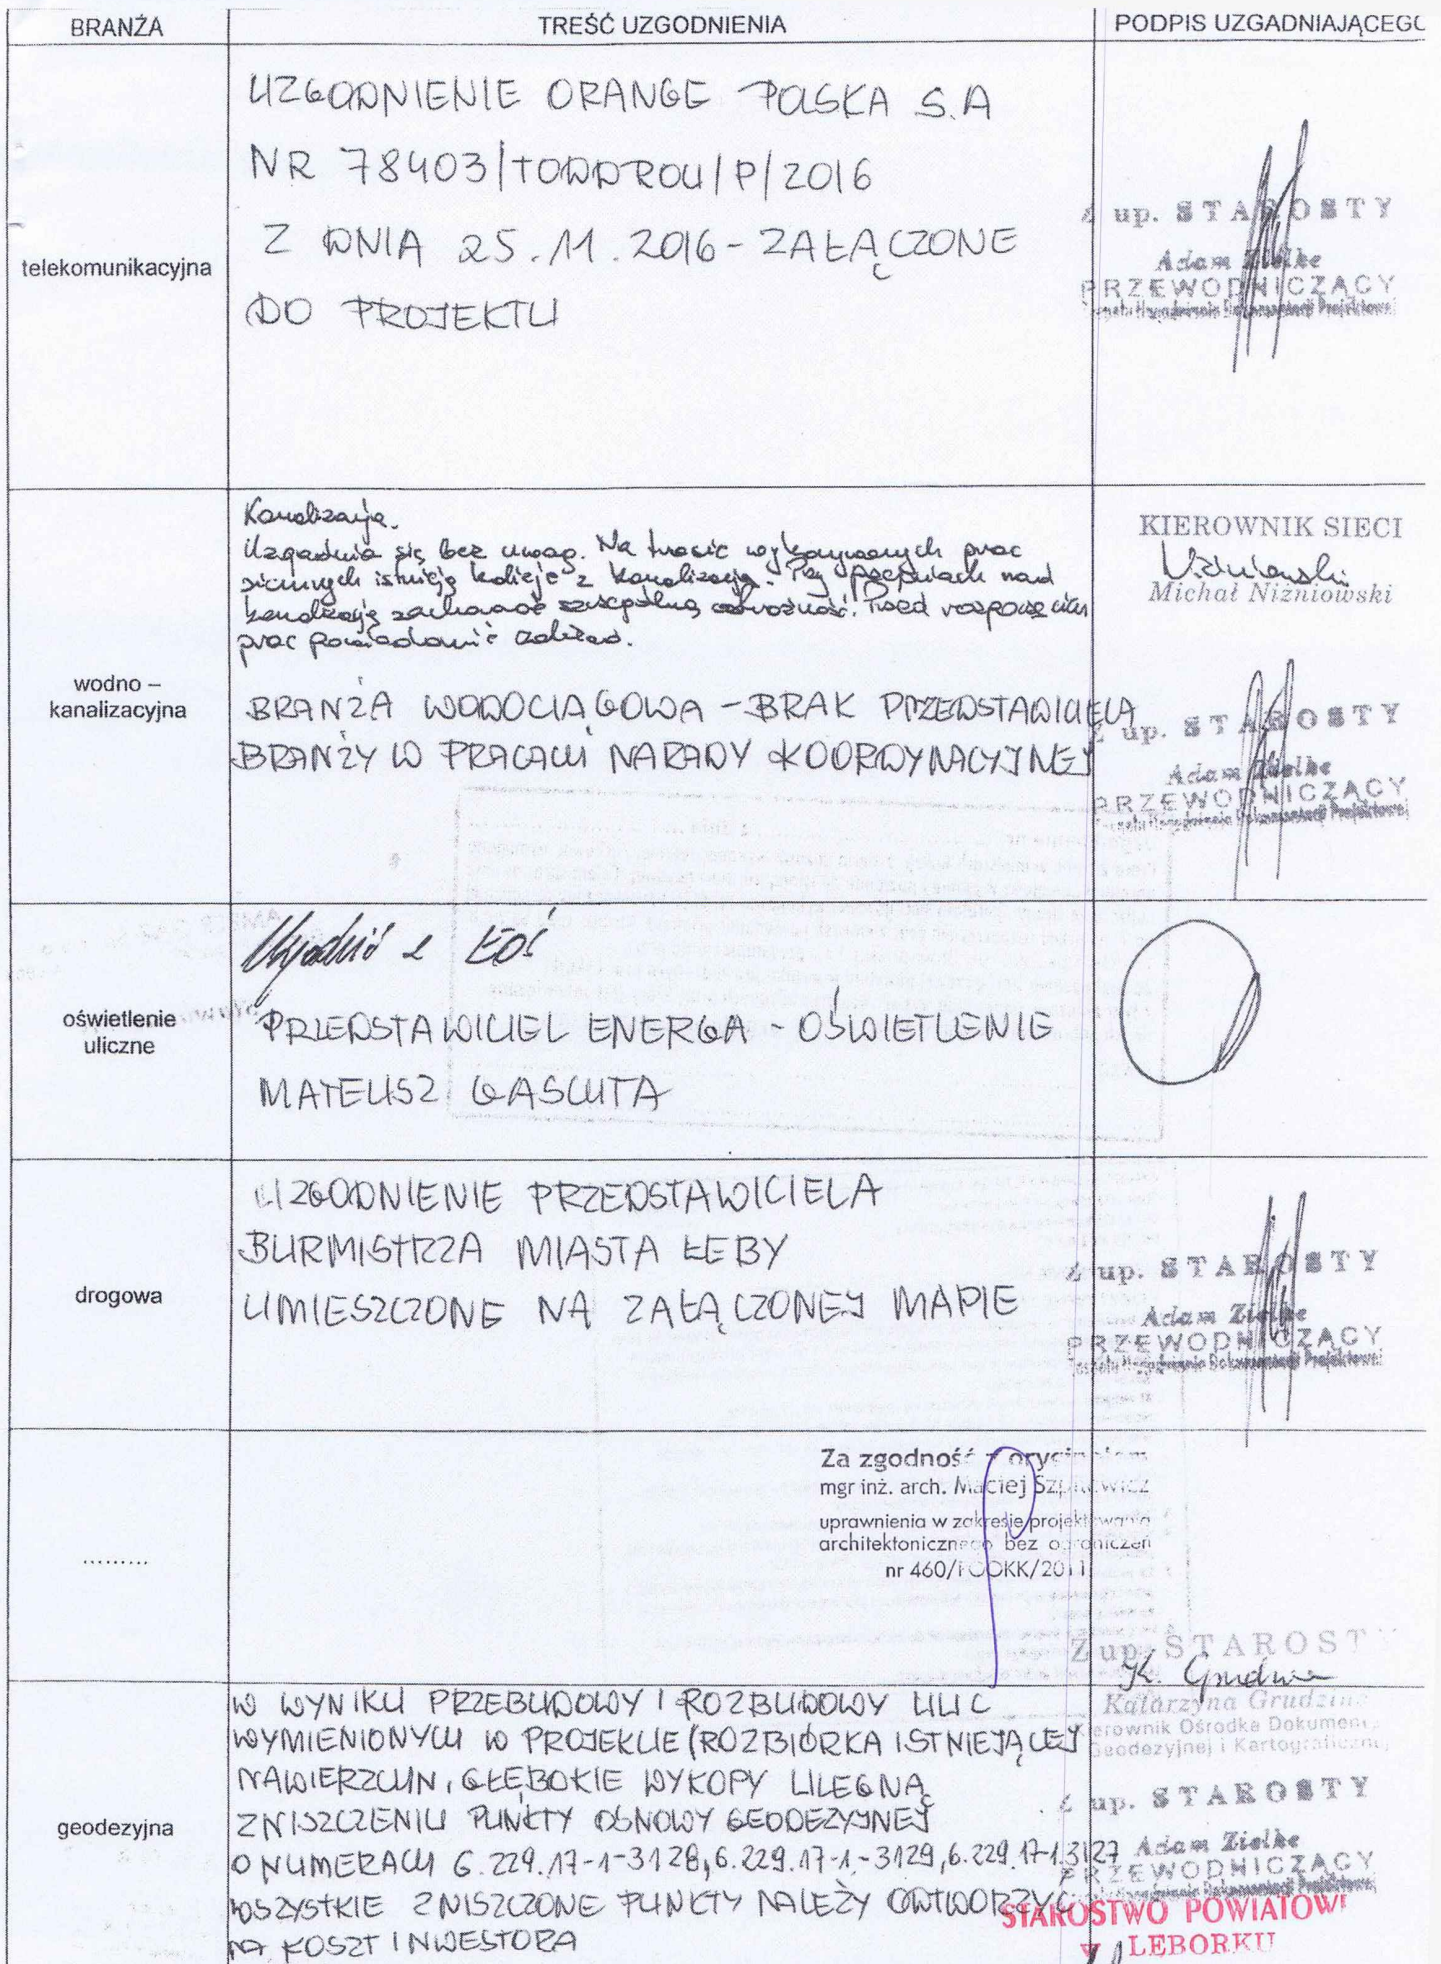 BRANŻA
TREŚĆ UZGODNIENIA
PODPIS UZGADNIAJĄCEGO
telekomunikacyjna
UZGODNIENIE ORANGE POLSKA S.A
NR 78403/TODDROU/P/2016
Z DNIA 25.11.2016 - ZAŁĄCZONE
DO PROJEKTU
Z up. STAROSTY
Adam Zielke
PRZEWODNICZĄCY
Zespołu Uzgadniania Dokumentacji Projektowej
wodno –
kanalizacyjna
Kanalizacja.
Uzgadnia się bez uwag. Na trasie wykonywanych prac
istnieją kolizje z kanalizacją. Przy nad
kanalizację zachować szczególną ostrożność. Przed rozpoczęciem
prac powiadomić zakład.
BRANŻA WODOCIĄGOWA - BRAK PRZEDSTAWICIELA
BRANŻY W PRACACH NARADY KOORDYNACYJNEJ
KIEROWNIK SIECI
Michał Niźniowski
Z up. STAROSTY
Adam Zielke
PRZEWODNICZĄCY
Zespołu Uzgadniania Dokumentacji Projektowej
oświetlenie
uliczne
Uzgodnić z EOŚ
PRZEDSTAWICIEL ENERGA - OŚWIETLENIE
MATEUSZ
drogowa
UZGODNIENIE PRZEDSTAWICIELA
BURMISTRZA MIASTA ŁEBY
UMIESZCZONE NA ZAŁĄCZONEJ MAPIE
Z up. STAROSTY
Adam Zielke
PRZEWODNICZĄCY
Zespołu Uzgadniania Dokumentacji Projektowej
.........
Za zgodność z oryginałem
mgr inż. arch. Maciej
uprawnienia w zakresie projektowania
architektonicznego bez ograniczeń
nr 460/POOKK/2011
Z up. STAROSTY
K. Grudzina
Katarzyna Grudzina
Kierownik Ośrodka Dokumentacji
Geodezyjnej i Kartograficznej
geodezyjna
W WYNIKU PRZEBUDOWY I ROZBUDOWY ULIC
WYMIENIONYCH W PROJEKCIE (ROZBIÓRKA ISTNIEJĄCEJ
NAWIERZCHN, GŁĘBOKIE WYKOPY ULEGNĄ
ZNISZCZENIU PUNKTY OSNOWY GEODEZYJNEJ
O NUMERACH 6.229.17-1-3128, 6.229.17-1-3129, 6.229.17-1.3127
WSZYSTKIE ZNISZCZONE PUNKTY NALEŻY ODTWORZYĆ
NA KOSZT INWESTORA
Z up. STAROSTY
Adam Zielke
PRZEWODNICZĄCY
Zespołu Uzgadniania Dokumentacji Projektowej
STAROSTWO POWIATOWE
w LĘBORKU